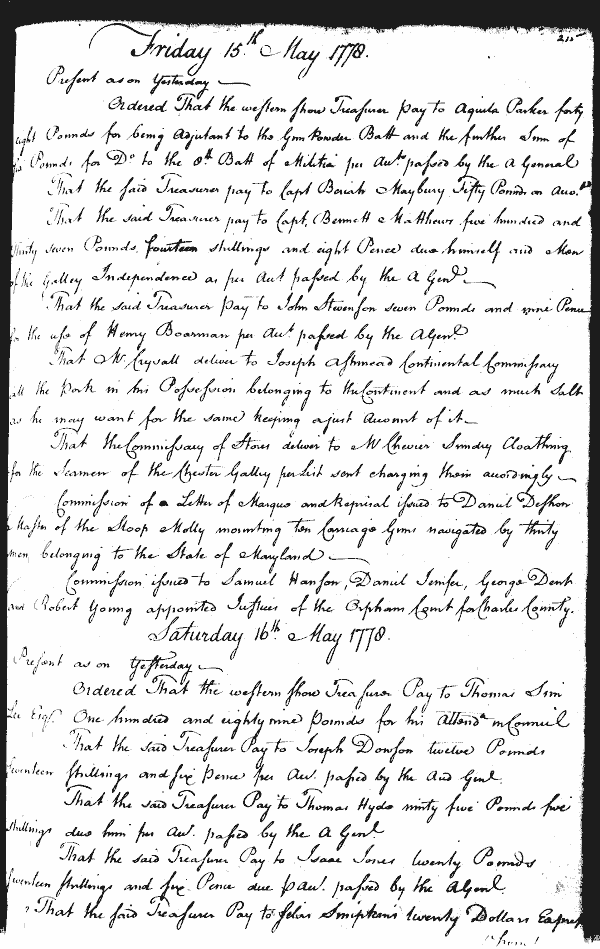 215
Friday 15th May 1778.
Present as on Yesterday
Ordered That the western Shore Treasurer pay to Aquila Parker forty
eight Pounds for being Adjutant to the Gun Powder Batt and the further Sum of
Pounds for Do to the 8th Batt of Militia per Acct passed by the A General
That the said Treasurer pay to Capt Beriah Maybury Fifty Pounds on Acct
That the said Treasurer pay to Capt. Bennett Matthews five hundred and
thirty seven Pounds, fourteen shillings and eight Pence due himself and Men
of the Galley Independence as per Acct passed by the A Genl
That the said Treasurer pay to John Stevenson seven Pounds and nine Pence
for the use of Henry Boarman per Acct passed by the A Genl
That Mr Crysall deliver to Joseph Ashmead Continental Commissary
all the Pork in his Possession belonging to the Continent and as much Salt
as he may want for the same keeping a just Account of it
That the Commissary of Stores deliver to Mr Chevier Sundry Cloathing
for the Seamen of the Chester Galley per List sent charging them accordingly
Commission of a Letter of Marque and Reprisal issued to Daniel Deshon
Master of the Sloop Molly mounting ten Carriage Guns navigated by thirty
men belonging to the State of Maryland
Commission issued to Samuel Hanson, Daniel Jenifer, George Dent
and Robert Young appointed Justices of the Orphans Court for Charles County.
Saturday 16th May 1778.
Present as on Yesterday
Ordered That the western Shore Treasurer Pay to Thomas Sim
Lee Esqr. One hundred and eighty nine pounds for his Attendce in Council
That the said Treasurer Pay to Joseph Dowson twelve Pounds
seventeen shillings and six Pence per Acct. passed by the Aud Genl.
That the said Treasurer Pay to Thomas Hyde ninty five Pounds five
shillings due him per Acct. passed by the A Genl
That the said Treasurer Pay to Isaac Jones twenty Pounds
seventeen shillings and six Pence due p Acct. passed by the A Genl.
That the said Treasurer Pay to Silas Simpkins twenty Dollars